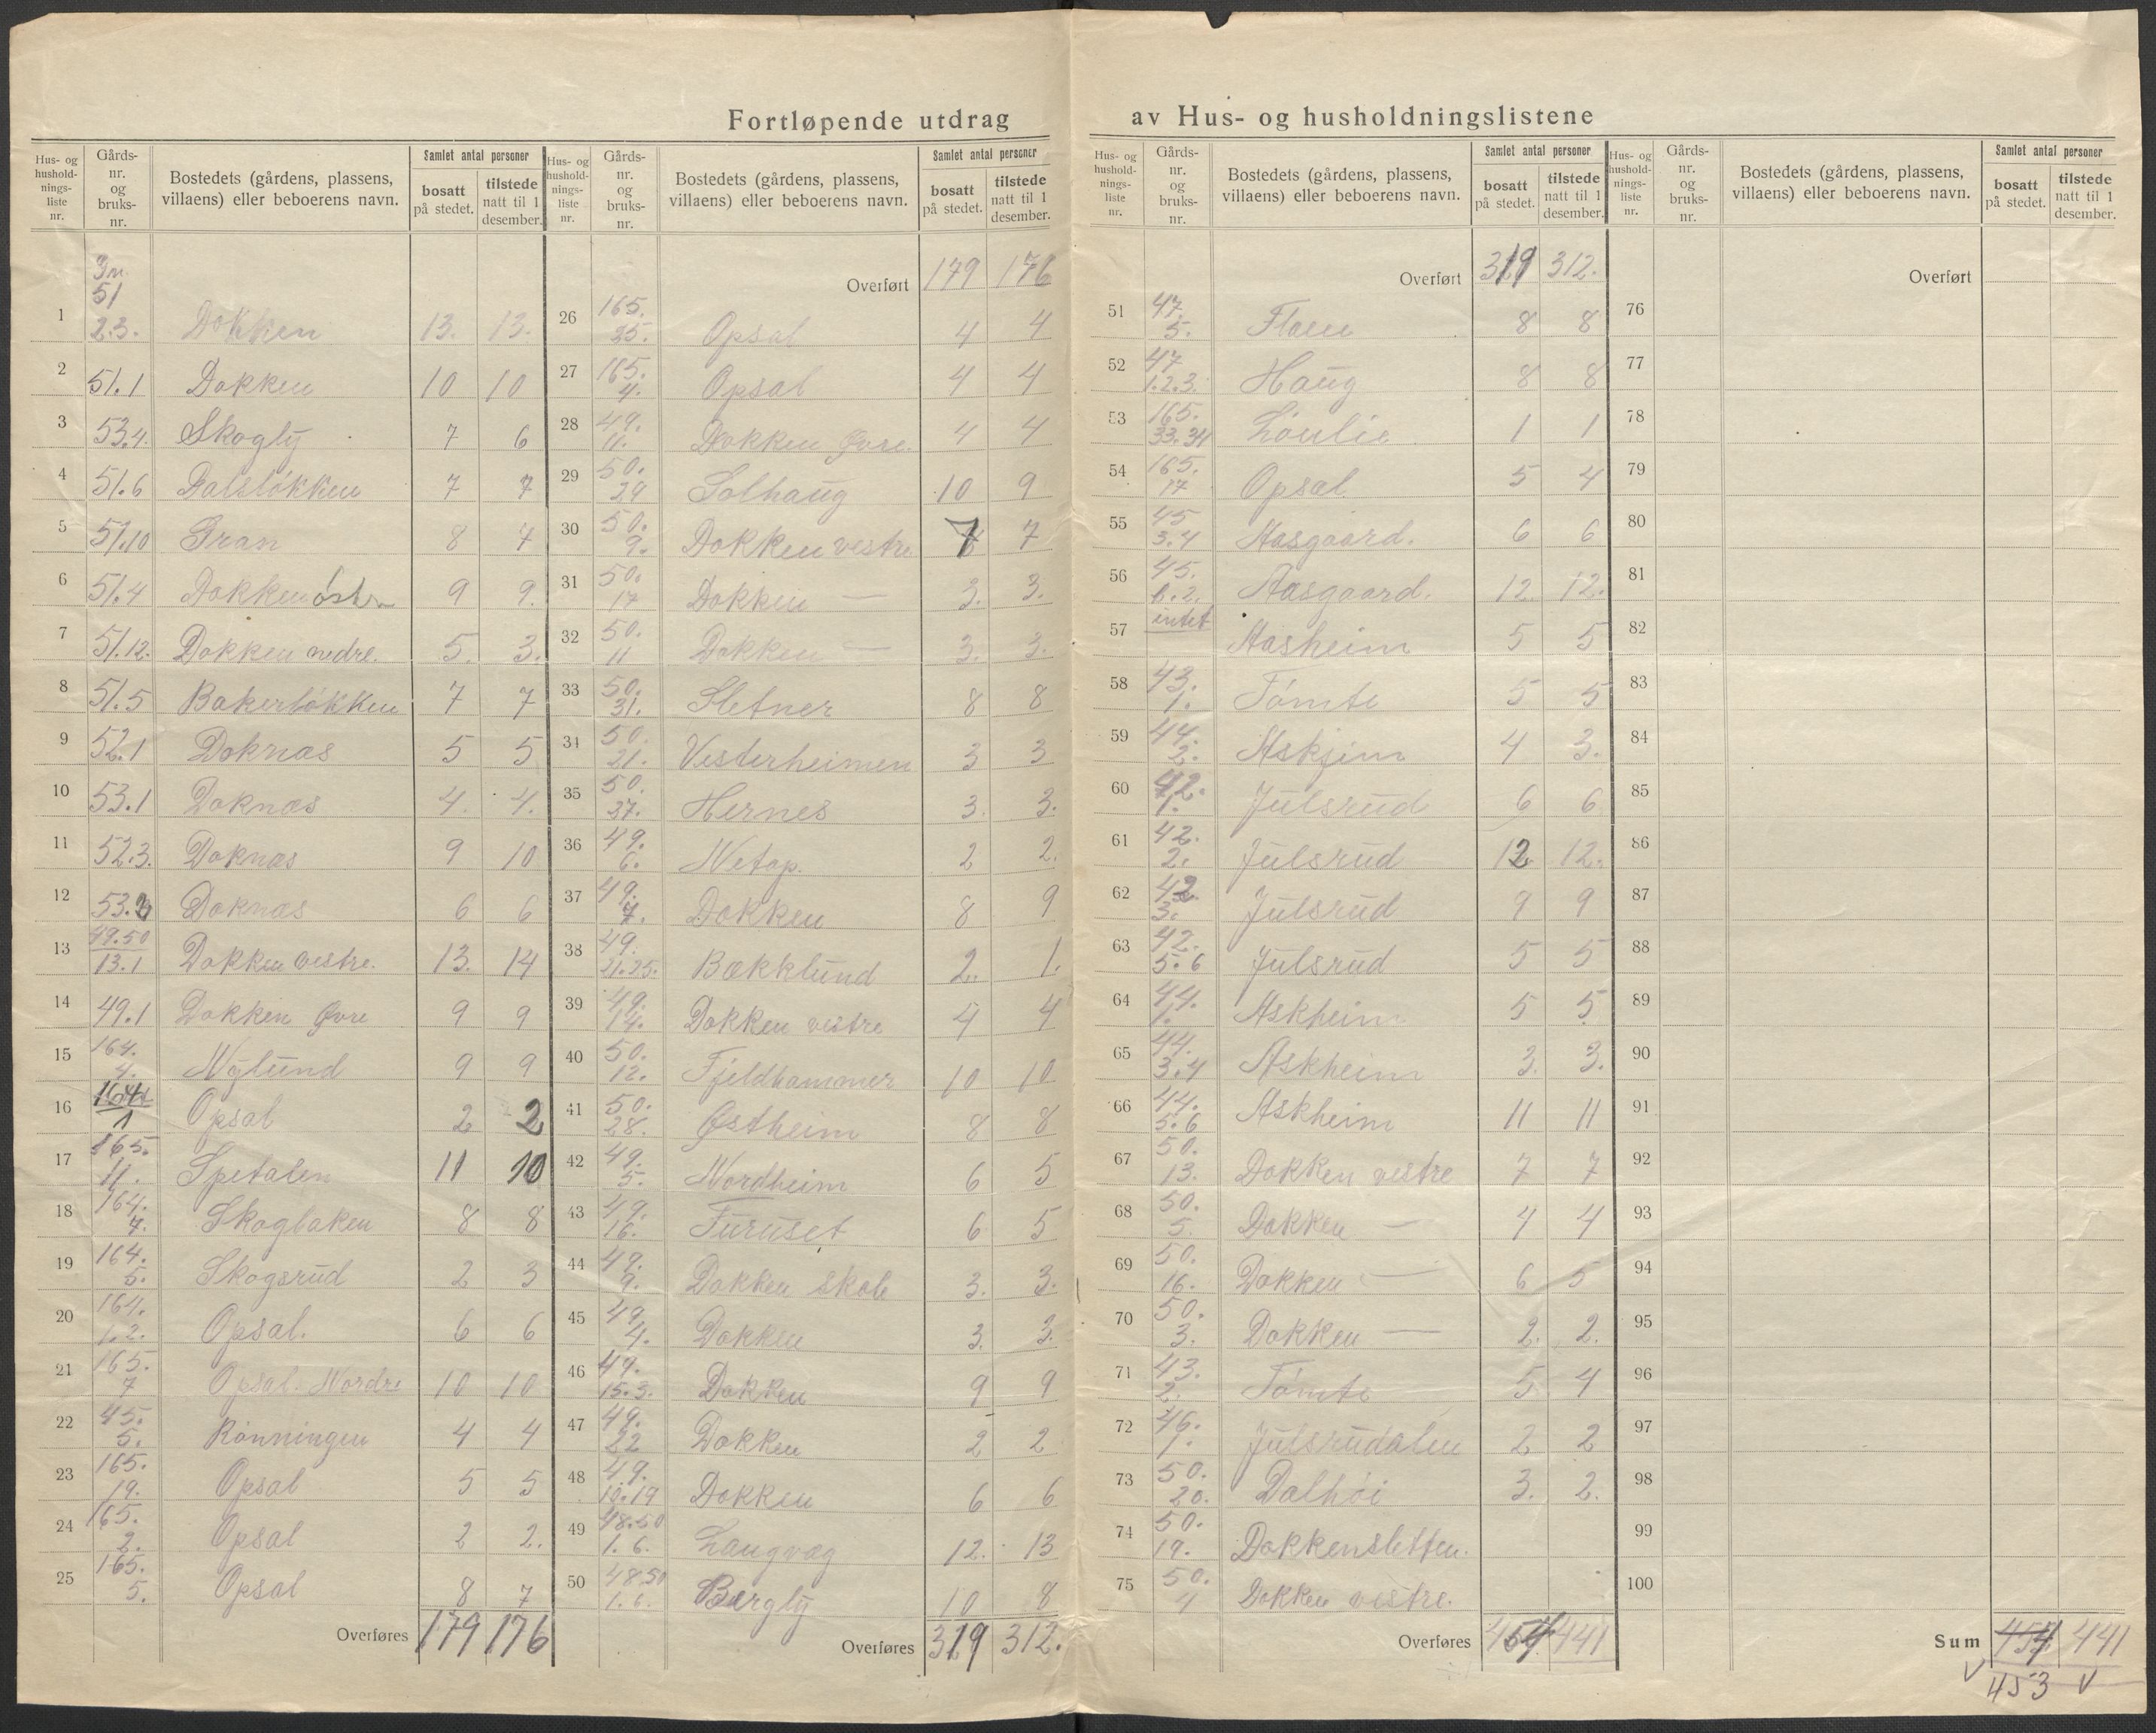 Fortløpende utdrag av Hus- og husholdningslistene
Hus- og hushold-nings-liste nr. Gårds-nr. og bruks-nr. Bostedets (gårdens, plassens, villaens) eller beboerens navn. Samlet antal personer bosatt på stedet. tilstede natt til 1 desember.
Gn.
51
1 2.3. Dokken 13. 13.
2 51.1 Dokken 10 10
3 53.4. Skogly 7 6
4 51.6 Dalsløkken 7 7
5 51.10 Gran 8 7
6 51.4 Dokken østre 9 9.
7 51.12. Dokken nedre. 5. 3.
8 51.5 Bakerløkken 7 7
9 52.1 Doknæs 5 5
10 53.1 Doknæs 4. 4.
11 52.3. Doknæs 9 10
12 53. Doknæs 6 6
13 49.50 13.1 Dokken vestre. 13. 14
14 49.1 Dokken Øvre 9 9
15 164. 4. Nylund 9 9
16 164 1 Opsal 2 2
17 165. 11. Spetalen 11 10
18 164. 7. Skogbaken 8 8
19 164. 5. Skogsrud 2 3
20 164. 1.2. Opsal. 6 6
21 165. 7 Opsal. Nordre 10 10
22 45. 5. Rønningen 4 4
23 165. 19. Opsal 5 5
24 165. 2. Opsal 2 2.
25 165. 5. Opsal 8 7
Overføres 179 176
Hus- og hushold-nings-liste nr. Gårds-nr. og bruks-nr. Bostedets (gårdens, plassens, villaens) eller beboerens navn. Samlet antal personer bosatt på stedet. tilstede natt til 1 desember.
Overført 179 176
26 165. 25. Opsal 4 4
27 165. 4. Opsal 4 4
28 49. 11. Dokken Øvre. 4 4
29 50. 29 Solhaug 10 9
30 50. 9. Dokken vestre 7 7
31 50. 17 Dokken — 3. 3.
32 50. 11 Dokken — 3. 3.
33 50. 31. Sletner 8 8
34 50. 21. Vesterheimen 3 3
35 50. 37. Hernes 3. 3.
36 49. 6. Netop. 2 2.
37 49. 7. Dokken 8 9
38 49. 21.25. Bækklund 2. 1.
39 49. 14. Dokken vestre 4 4
40 50. 12. Fjeldhammer 10 10
41 50. 28. Østheim 8 8
42 49. 5. Nordheim 6 5
43 49. 16. Furuset 6 5
44 49. 9. Dokken skole 3. 3.
45 49 4. Dokken 3. 3.
46 49. 15.3. Dokken 9 9
47 49. 22 Dokken 2 2
48 49. 10.19 Dokken 6 6
49 48.50 1. 6. Langvag 12. 13
50 48.50 1. 6. Bergly 10 8
Overføres 319 312.
Hus- og hushold-nings-liste nr. Gårds-nr. og bruks-nr. Bostedets (gårdens, plassens, villaens) eller beboerens navn. Samlet antal personer bosatt på stedet. tilstede natt til 1 desember.
Overført 319 312.
51 47. 5. Floen 8 8
52 47 1.2.3. Haug 8 8
53 165. 33.34 Lønlie 1 1
54 165. 17 Opsal 5 4
55 45 3.4 Aasgaard. 6 6
56 45. 2. Aasgaard. 12. 12.
57 intet Aasheim 5 5
58 43. 1. Tømte 5 5
59 44. 2. Askjim 4 3.
60 42. 1. Julsrud 6 6
61 42. 2. Julsrud 12 12.
62 42 3. Julsrud 9 9
63 42. 5.6 Julsrud 5 5
64 44. 1. Askheim 5 5
65 44. 3.4 Askheim 3. 3.
66 44. 5.6 Askheim 11 11
67 50. 13. Dokken vestre 7 7
68 50. 5. Dokken — 4 4
69 50. 16. Dokken — 6 5
70 50. 3. Dokken — 2. 2.
71 43. 2. Tømte 5 4
72 46. 1. Julsrudalen 2 2
73 50. 20. Dalhøi 3. 2.
74 50. 19. Dokkensletten.
75 50. 4 Dokken vestre.
Overføres 454 441
Hus- og hushold-nings-liste nr. Gårds-nr. og bruks-nr. Bostedets (gårdens, plassens, villaens) eller beboerens navn. Samlet antal personer bosatt på stedet. tilstede natt til 1 desember.
Overført
76
77
78
79
80
81
82
83
84
85
86
87
88
89
90
91
92
93
94
95
96
97
98
99
100
Sum 454 441
453